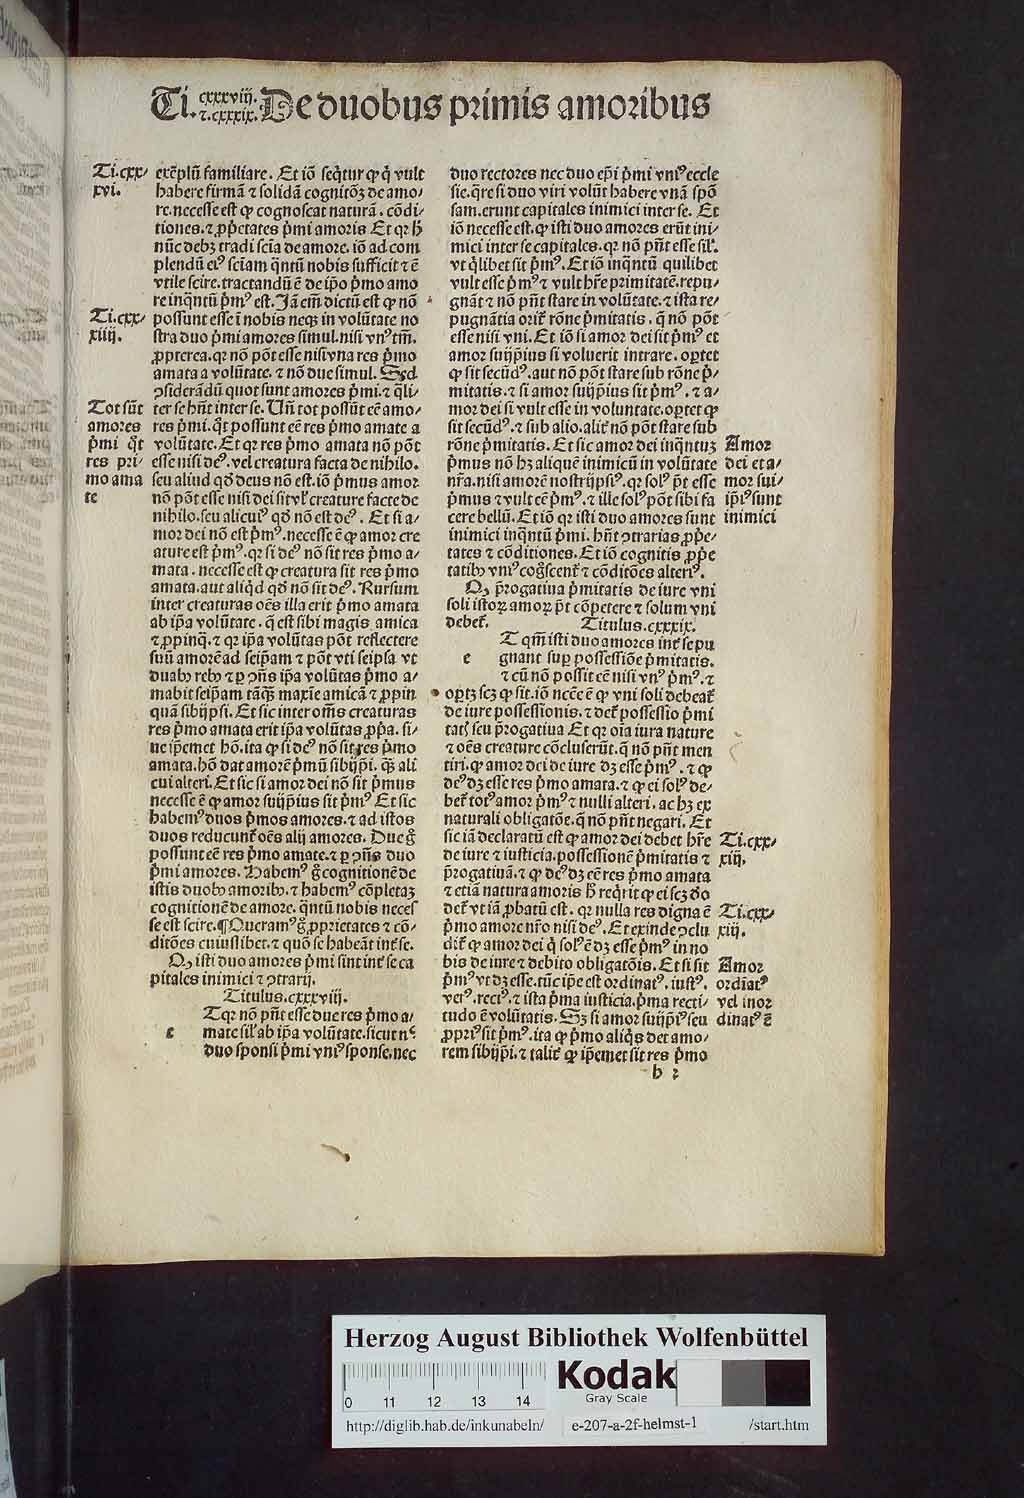 Ti. cxxxviij. ⁊.cxxxix. De duobus primis amoribus
Ti.cxx/
xvi.
exẽplũ familiare. Et iõ seq̃tur ꝙ q̃ vult
habere firmã ⁊ solidã cognitõꝫ de amo/
re. necesse est ꝙ cognoscat naturã. cõdi/
tiones. ⁊ ꝓp̃etates p̃mi amoris Et qꝛ h̃
nũc debꝫ tradi sciẽa de amore. iõ ad com
plendũ eiꝰ sciẽam q̃ntũ nobis sufficit ⁊ ẽ
vtile scire. tractandũ ẽ de ip̃o p̃mo amo
re inq̃ntũ p̃mꝰ est. Jã em̃ dictũ est ꝙ nõ
Ti.cxx/
xiiij.
possunt esse ĩ nobis neqꝫ in volũtate no
stra duo p̃mi amores simul. nisi vnꝰ tm̃.
ꝓpterea. qꝛ nõ põt esse nisi vna res p̃mo
amata a volũtate. ⁊ nõ due simul. Sed
ꝯsiderãdũ quot sunt amores p̃mi. ⁊ q̃li/
Tot sũt
amores
p̃mi q̃t
res pri/
mo ama
te
ter se hñt inter se. Uñ tot possũt eẽ amo/
res p̃mi. q̃t possunt eẽ res p̃mo amate a
volũtate. Et qꝛ res p̃mo amata nõ põt
esse nisi deꝰ. vel creatura facta de nihilo.
seu aliud qð deus nõ est. iõ p̃mus amor
nõ põt esse nisi dei sit vl̃ creature facte de
nihilo. seu alicuiꝰ qð nõ est deꝰ. Et si a/
mor dei nõ est p̃mꝰ. necesse ẽ ꝙ amor cre
ature est p̃mꝰ. qꝛ si deꝰ nõ sit res p̃mo a/
mata. necesse est ꝙ creatura sit res p̃mo
amata. aut aliq̃d qð nõ sit deꝰ. Rursum
inter creaturas oẽs illa erit p̃mo amata
ab ip̃a volũtate. q̃ est sibi magis amica
⁊ ꝓpinq̃. ⁊ qꝛ ip̃a volũtas põt reflectere
suũ amorẽ ad seip̃am ⁊ põt vti seipsa vt
duabꝰ rebꝰ ⁊ ꝑ ꝯñs ip̃a volũtas p̃mo a/
mabit seip̃am tãqꝫ maxĩe amicã ⁊ ꝓpin
quã sibijpsi. Et sic inter om̃s creaturas
res p̃mo amata erit ip̃a volũtas ꝓp̃a. si/
ue ip̃emet hõ. ita ꝙ si deꝰ nõ sit res p̃mo
amata. hõ dat amorẽ p̃mũ sibijp̃i. qꝫ ali
cui alteri. Et sic si amor dei nõ sit p̃mus
necesse ẽ ꝙ amor suijp̃ius sit p̃mꝰ Et sic
habemꝰ duos p̃mos amores. ⁊ ad istos
duos reducunt̃ oẽs alij amores. Due g̃
possunt eẽ res p̃mo amate. ⁊ ꝑ ꝯñs duo
p̃mi amores. Habemꝰ g̃ cognitionẽ de
istis duobꝰ amoribꝰ. ⁊ habemꝰ cõpletaꝫ
cognitionẽ de amore. q̃ntũ nobis neces
se est scire. ¶Queramꝰ g̃ ꝓprietates ⁊ cõ/
ditões cuiuslibet. ⁊ quõ se habeãt int̃ se.
Qꝙ isti duo amores p̃mi sint int̃ se ca
pitales inimici ⁊ ꝯtrarij.
Titulus.cxxxviij.
e
Tqꝛ nõ pñt esse due res p̃mo a/
mate sil̃ ab ip̃a volũtate. sicut nꝰ
duo sponsi p̃mi vniꝰ sponse. nec
duo rectores nec duo ep̃i p̃mi vniꝰ eccle
sie. q̃re si duo viri volũt habere vnã spõ
sam. erunt capitales inimici inter se. Et
iõ necesse est. ꝙ isti duo amores erũt ini/
mici inter se capitales. qꝛ nõ pñt esse sil̃.
vt q̃libet sit p̃mꝰ. Et iõ inq̃ntũ quilibet
vult esse p̃mꝰ ⁊ vult hr̃e primitatẽ. repu/
gnãt ⁊ nõ pñt stare in volũtate. ⁊ ista re/
pugnãtia orit̃ rõne p̃mitatis. q̃ nõ põt
esse nisi vni. Et iõ si amor dei sit p̃mꝰ et
amor suijp̃ius si voluerit intrare. oꝑtet
ꝙ sit secũdꝰ. aut nõ põt stare sub rõne p̃/
mitatis. ⁊ si amor suijp̃ius sit p̃mꝰ. ⁊ a/
mor dei si vult esse in voluntate. oꝑtet ꝙ
sit secũdꝰ. ⁊ sub alio. alit̃ nõ põt stare sub
rõne p̃mitatis. Et sic amor dei inq̃ntuꝫ
Amor
dei et a/
mor sui/
ip̃iꝰ sunt
inimici
p̃mus nõ hꝫ aliquẽ inimicũ in volũtate
nr̃a. nisi amorẽ nostrijpsiꝰ. qꝛ solꝰ pt̃ esse
p̃mus ⁊ vult eẽ p̃mꝰ. ⁊ ille solꝰ põt sibi fa
cere bellũ. Et iõ qꝛ isti duo amores sunt
inimici inq̃ntũ p̃mi. hñt ꝯtrarias ꝓp̃e/
tates ⁊ cõditiones. Et iõ cognitis ꝓp̃e
tatibꝰ vniꝰ cog̃scent̃ ⁊ cõditões alteriꝰ.
Qꝙ p̃rogatiua p̃mitatis de iure vni
soli istoꝝ amoꝝ pt̃ cõpetere ⁊ solum vni
debet̃. Titulus.cxxxix.
e
T qm̃ isti duo amores int̃ se pu
gnant suꝑ possessiõe p̃mitatis.
⁊ cũ nõ possit eẽ nisi vnꝰ p̃mꝰ. ⁊
oꝑtꝫ scꝫ ꝙ sit. iõ ncẽe ẽ ꝙ vni soli debeat̃
de iure possessionis. ⁊ det̃ possessio p̃mi
tatꝭ seu p̃rogatiua Et qꝛ oĩa iura nature
⁊ oẽs creature cõcluserũt. q̃ nõ pñt men
tiri. ꝙ amor dei de iure dꝫ esse p̃mꝰ. ⁊ ꝙ
deꝰ dꝫ esse res p̃mo amata. ⁊ ꝙ ei solꝰ de/
bet̃ totꝰ amor p̃mꝰ ⁊ nulli alteri. ac hꝫ ex
naturali obligatõe. q̃ nõ pñt negari. Et
sic iã declaratũ est ꝙ amor dei debet hr̃e
Ti.cxx/
xiij.
de iure ⁊ iusticia. possessionẽ p̃mitatis ⁊
p̃rogatiuã. ⁊ ꝙ deꝰ dꝫ eẽ res p̃mo amata
⁊ etiã natura amoris h̃ req̃rit ꝙ ei scꝫ do
det̃ vt iã ꝓbatũ est. qꝛ nulla res digna ẽ
Ti.cxx/
xiij.
p̃mo amore nr̃o nisi deꝰ. Et exinde ꝯclu
dit̃ ꝙ amor dei q̃ solꝰ ẽ dꝫ esse p̃mꝰ in no
bis de iure ⁊ debito obligatõis. Et si sit
Amor
ordĩatꝰ
vel inor
dinatꝰ ẽ
p̃mꝰ vt dꝫ esse. tũc ip̃e est ordinatꝰ. iustꝰ.
verꝰ. rectꝰ. ⁊ ista p̃ma iusticia. p̃ma recti/
tudo ẽ volũtatis. Sꝫ si amor suijp̃iꝰ seu
ꝓpriꝰ sit p̃mꝰ. ita ꝙ p̃mo aliq̃s det amo/
rem sibijp̃i. ⁊ talit̃ ꝙ ip̃emet sit res p̃mo
h 2
Herzog August Bibliothek Wolfenbüttel
0 11 12 13 14
Kodak
Gray Scale
http://diglib.hab.de/inkunabeln/ e-207-a-2f-helmst-1 /start.htm